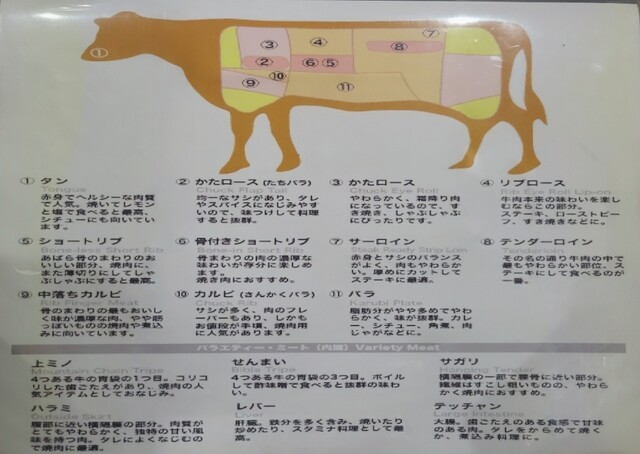 ①
③
④
⑦
②
⑥
⑤
⑧
⑨
⑩
⑪
① タン
Tongue
赤身でヘルシーな肉質
で人気。焼いてレモン
と塩で食べると最高、
シチューにも向いてい
ます。
② かたロース (たちバラ)
Chuck Flap Tail
均一なサシがあり、タレ
やスパイスになじみやす
いので、味つけして料理
すると抜群。
③ かたロース
Chuck Eye Roll
やわらかく、霜降り肉
になっているので、す
き焼き、しゃぶしゃぶ
にぴったりです。
④ リブロース
Rib Eye Roll Lip-on
牛肉本来の味わいを楽し
むならこの部分。
ステーキ、ローストビー
フ、すき焼きなどに。
⑤ ショートリブ
Bone-less Short Rib
あばら骨のまわりのお
いしい部分、焼肉に、
また薄切りにしてしゃ
ぶしゃぶすると最高。
⑥ 骨付きショートリブ
Bone-in Short Rib
骨まわりの肉の濃厚な
味わいが存分に楽しめ
ます。
焼き肉におすすめ。
⑦ サーロイン
Steak Ready Strip Loin
赤身とサシのバランス
がよく、肉もやわらか
い。厚めにカットして
ステーキに最適。
⑧ テンダーロイン
Tenderloin
その名の通り牛肉の中で
最もやわらかい部位。ス
テーキにして食べるのが
一番。
⑨ 中落ちカルビ
Rib Finger Meat
骨のまわりの最もおいし
く味が濃厚な肉。やや筋
っぽいものの焼肉や煮込
みに向いています。
⑩ カルビ (さんかくバラ)
Chuck Rib
サシが多く、肉のフレ
ーバーもあり、しかも
お値段が手頃、焼肉用
に人気があります。
⑪ バラ
Karubi Plate
脂肪分がやや多めでやわ
らかく、味が抜群。カレ
ー、シチュー、角煮、肉
じゃがなどに。
バラエティー・ミート (内臓) Variety Meat
上ミノ
Mountain Chain Tripe
4つある牛の胃袋の1つ目。コリコ
リした歯ごたえがあり、焼肉の人
気アイテムとしておなじみ。
せんまい
Bible Tripe
4つある牛の胃袋の3つ目。ボイル
して酢味噌で食べると抜群の味わ
い。
サガリ
Hanging Tender
横隔膜の一部で腰骨に近い部分。
繊維はすこし粗いものの、やわら
かく焼肉におすすめ。
ハラミ
Outside Skirt
腹部に近い横隔膜の部分。肉質が
とてもやわらかく、独特の甘い風
味を持つ肉。タレによくなじむの
で焼肉に最適。
レバー
Liver
肝臓。鉄分を多く含み、焼いたり
炒めたり、スタミナ料理として最
高。
テッチャン
Large Intestine
大腸。歯ごたえのある食感で甘味
のある肉。タレをからめて焼く
か、煮込み料理に。